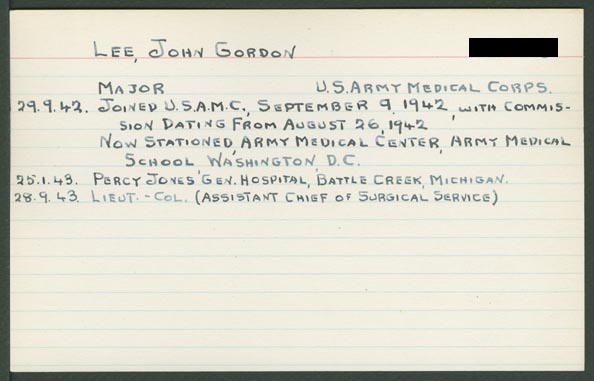 LEE, JOHN GORDON
MAJOR U.S. ARMY MEDICAL CORPS.
29.9.42. JOINED U.S.A.M.C., SEPTEMBER 9, 1942, WITH COMMIS-
SION DATING FROM AUGUST 26, 1942
NOW STATIONED, ARMY MEDICAL CENTER, ARMY MEDICAL
SCHOOL WASHINGTON, D.C.
25.1.43. PERCY JONES' GEN. HOSPITAL, BATTLE CREEK, MICHIGAN.
28.9.43. LIEUT.-COL. (ASSISTANT CHIEF OF SURGICAL SERVICE)